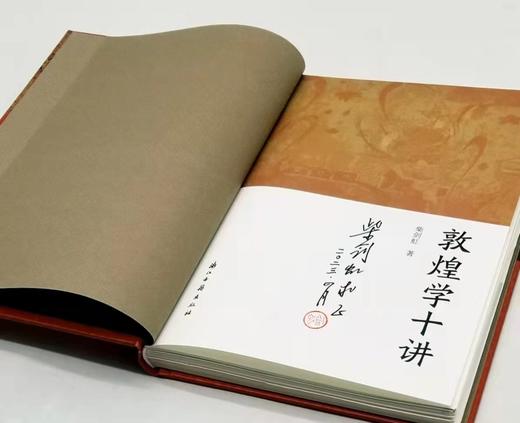 敦煌学十讲
柴剑虹 著
柴剑虹
二〇二三.四月
浙江古籍出版社